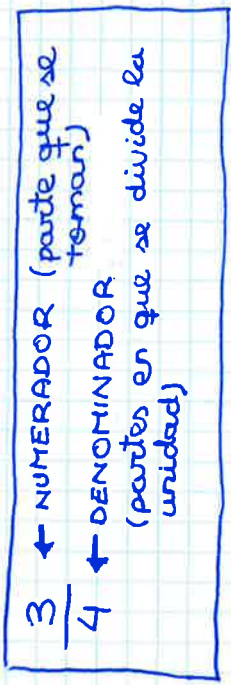 3 ← NUMERADOR (parte que se
toman)
4 ← DENOMINADOR
(partes en que se divide la
unidad)